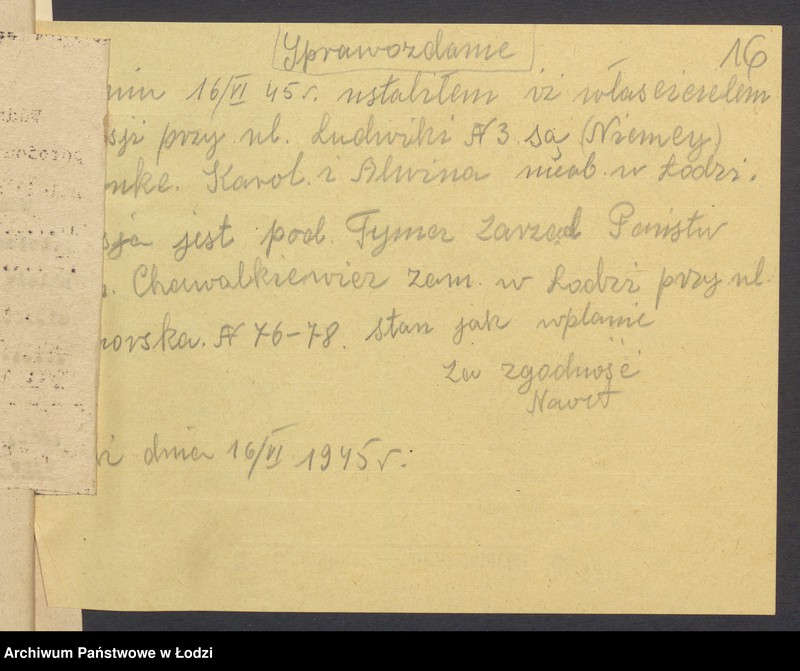 Sprawozdanie
16
niu 16/VI 45 r. ustaliłem iż właścicielem
sji przy ul. Ludwiki N 3 są (Niemcy)
nke. Karol. i Alwina nieob. w Łodzi.
sja jest pod. Tymcz Zarząd Państw
Chawalkiewicz zam. w Łodzi przy ul.
norska. N 76-78. stan jak wplanie
Za zgodność
dnia 16/VI 1945 r.
Archiwum Państwowe w Łodzi